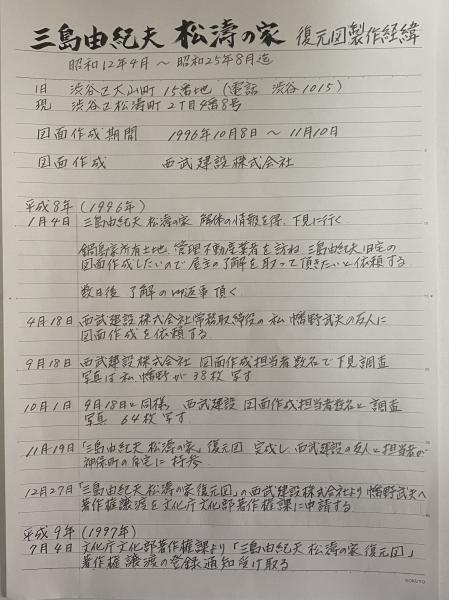 三島由紀夫 松濤の家 復元図製作経緯
昭和12年4月 〜 昭和25年8月迄
旧 渋谷区大山町 15番地 (電話 渋谷1015)
現 渋谷区松濤町 2丁目4番8号
図面作成期間 1996年10月8日 〜 11月10日
図面作成 西武建設株式会社
平成8年 (1996年)
1月4日 三島由紀夫 松濤の家 解体の情報を得、下見に行く
鍋島家所有土地、管理不動産業者を訪ね、三島由紀夫旧宅の
図面作成したいので屋主の了解を取って頂きたいと依頼する
数日後 了解の御返事頂く
4月18日 西武建設株式会社常務取締役の私 幡野武夫の友人に
図面作成を依頼する
9月18日 西武建設株式会社 図面作成担当者数名で下見調査
写真は私、幡野が38枚写す
10月1日 9月18日と同様 西武建設 図面作成担当者数名と調査
写真 64枚写す
11月19日 「三島由紀夫 松濤の家」復元図 完成し、西武建設の友人と担当者が
神保町の自宅に持参
12月27日 「三島由紀夫 松濤の家復元図」の西武建設株式会社より幡野武夫へ
著作権譲渡を文化庁文化部著作権課に申請する
平成9年 (1997年)
7月4日 文化庁文化部著作権課より「三島由紀夫 松濤の家 復元図」
著作権譲渡の登録通知受け取る
KOKUYO